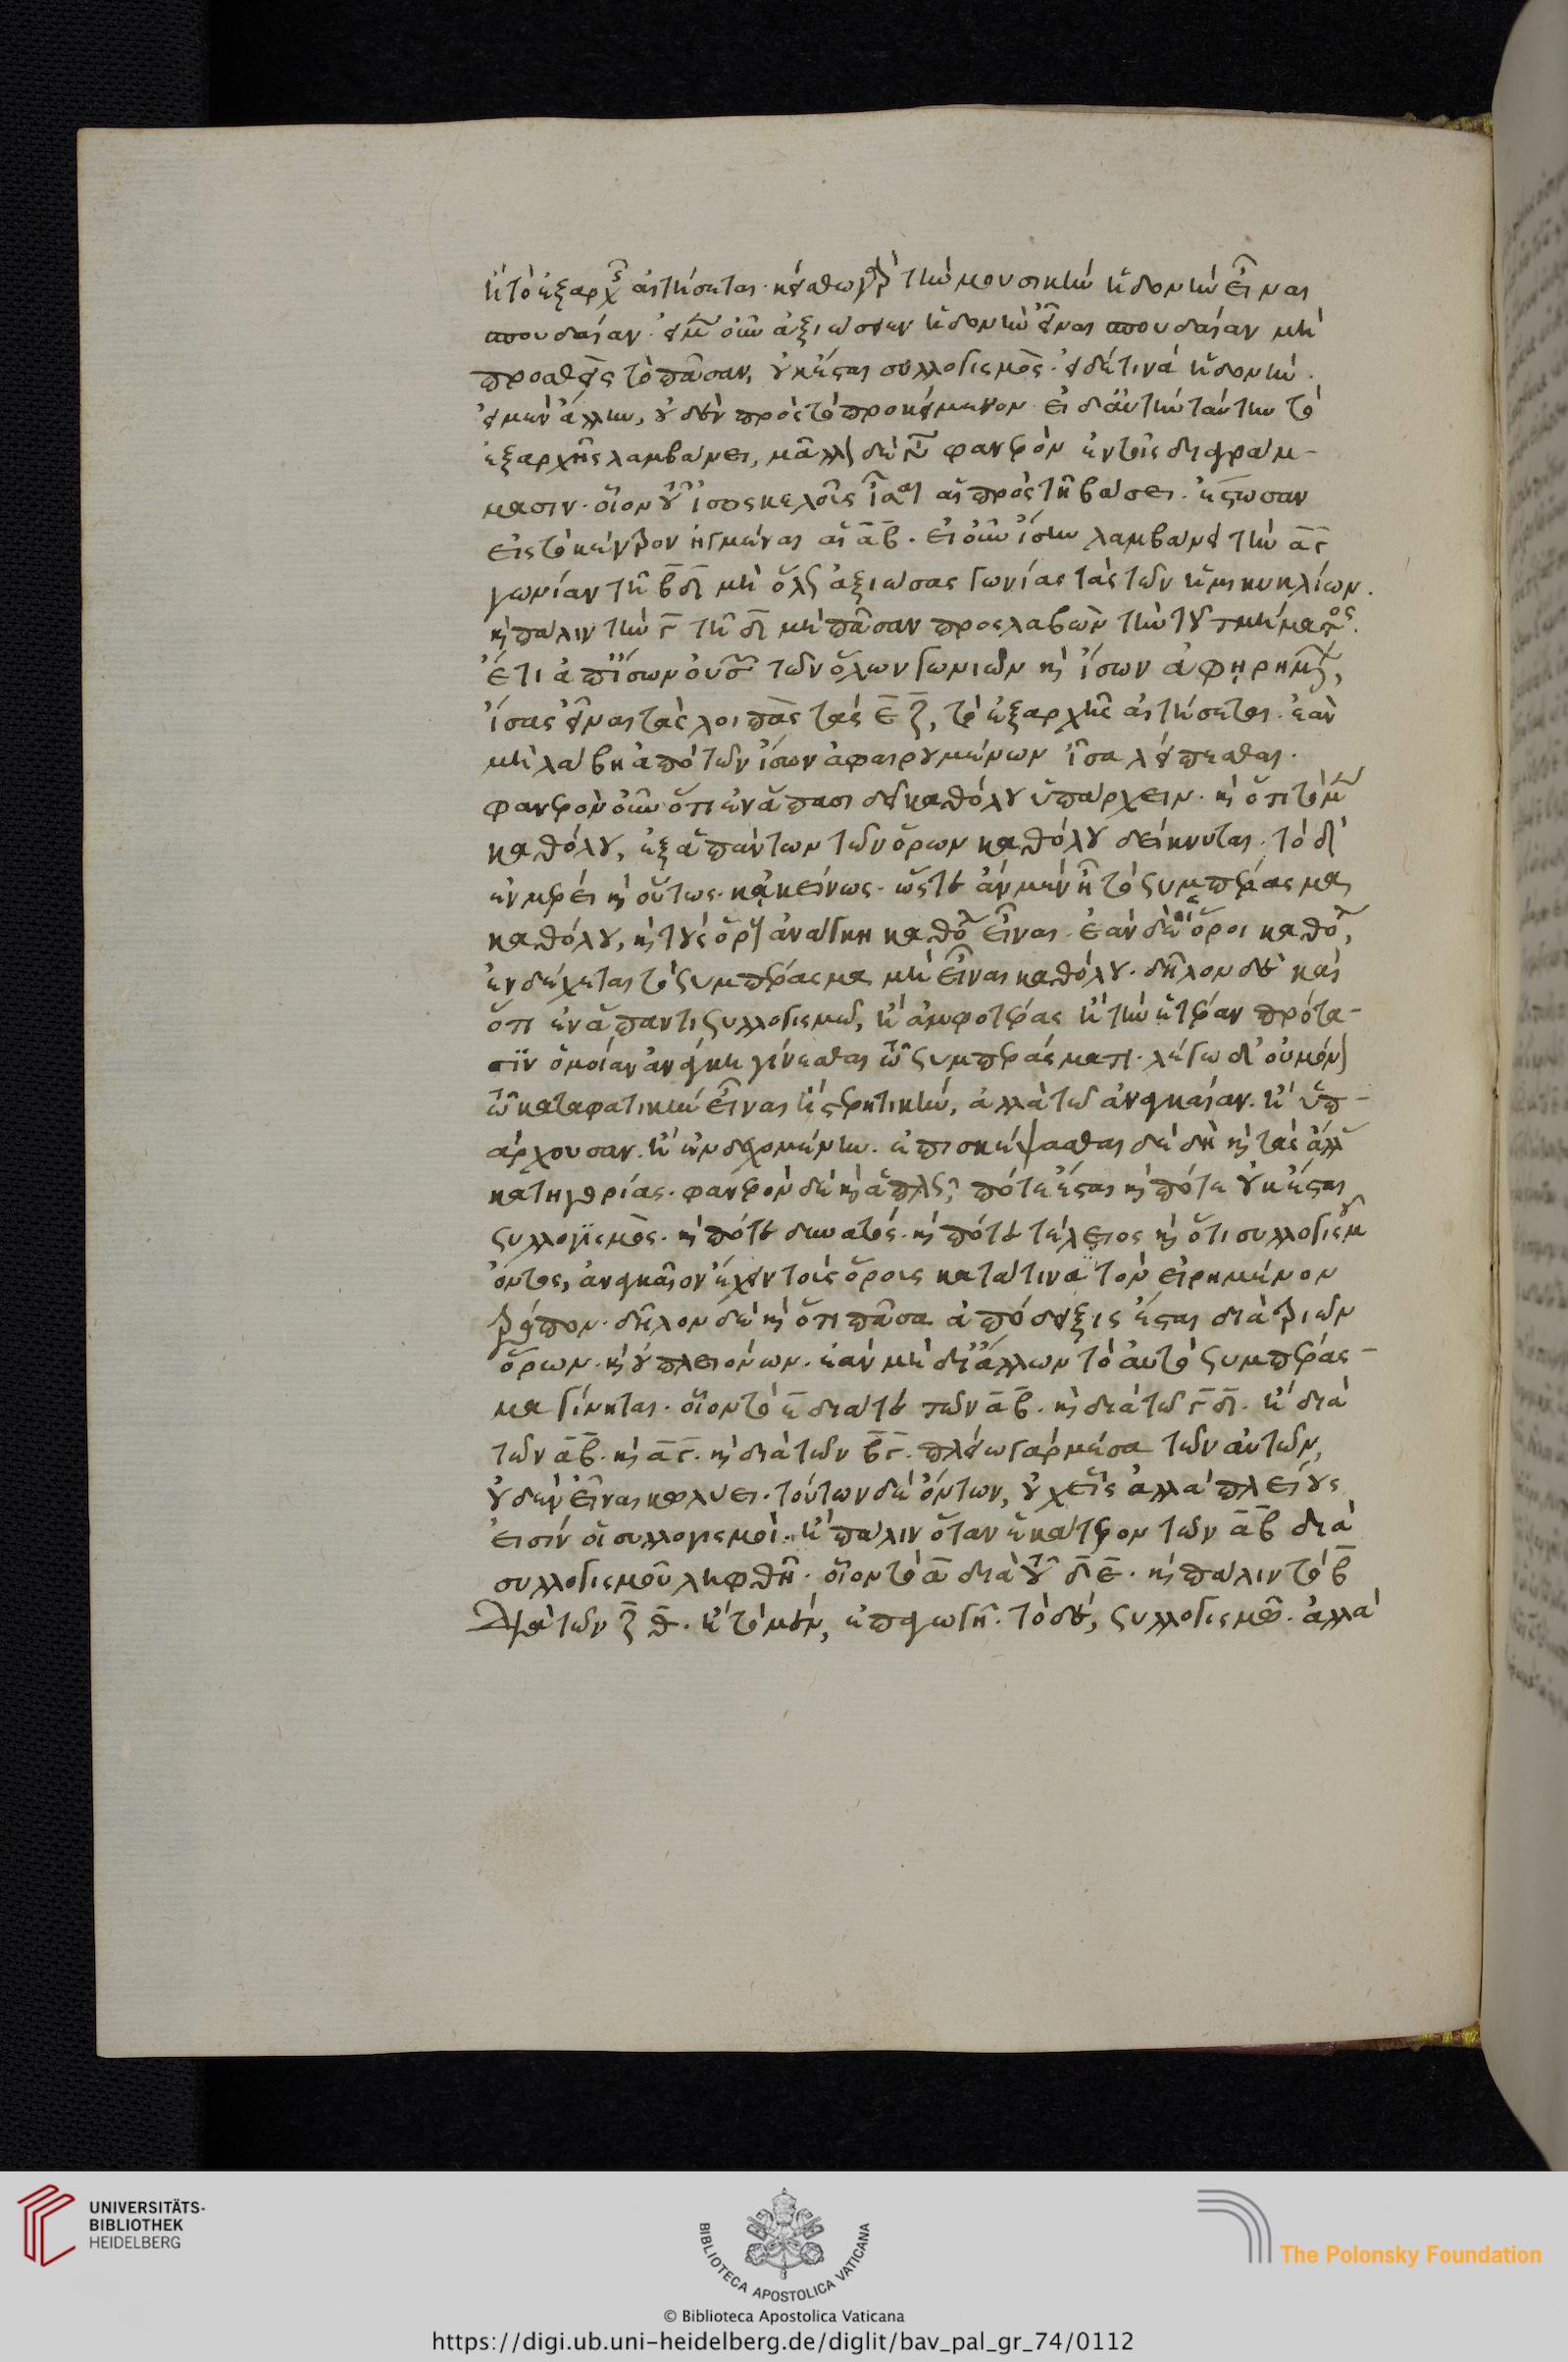 ἢ τὸ ἐξαρχῆς αἰτήσεται· κείσθω γὰρ τὴν μουσικὴν ἡδονὴν εἶναι
σπουδαίαν· εἰ μὲν οὖν ἀξιώσειεν ἡδονὴν εἶναι σπουδαίαν μὴ
προσθεὶς τὸ πᾶσαν, οὐκ ἔσται συλλογισμός· εἰ δέ τινα ἡδονήν·
εἰ μὲν ἄλλην, οὐδὲν πρὸς τὸ προκείμενον· εἰ δ' αὐτὴν ταύτην τὸ
ἐξαρχῆς λαμβάνει, μᾶλλον δὲ φανερὸν ἐν τοῖς διαγράμ-
μασιν· οἷον τοῦ ἰσοσκελοῦς ἴσαι αἱ πρὸς τῇ βάσει· ἔστωσαν
εἰς τὸ κέντρον ἠγμέναι αἱ α̅β̅· εἰ οὖν ἴσην λαμβάνει τὴν α̅γ̅
γωνίαν τῇ β̅δ̅ μὴ ὅλως ἀξιώσας γωνίας τὰς τῶν ἡμικυκλίων·
καὶ πάλιν τὴν γ̅ τῇ δ̅ μὴ πᾶσαν προσλαβὼν τὴν τοῦ τμήματος·
ἔτι ἀπ' ἴσων οὐσῶν τῶν ὅλων γωνιῶν καὶ ἴσων ἀφῃρημένων,
ἴσας εἶναι τὰς λοιπὰς τὰς ε̅ ζ̅, τὸ ἐξαρχῆς αἰτήσεται· ἐὰν
μὴ λάβῃ ἀπὸ τῶν ἴσων ἀφαιρουμένων ἴσα λείπεσθαι·
φανερὸν οὖν ὅτι ἐν ἅπασι δεῖ καθόλου ὑπάρχειν· καὶ ὅτι τὸ μὲν
καθόλου, ἐξ ἁπάντων τῶν ὅρων καθόλου δείκνυται· τὸ δ'
ἐν μέρει καὶ οὕτως κἀκείνως· ὥστε ἂν μὲν ᾖ τὸ συμπέρασμα
καθόλου, καὶ τοὺς ὅρους ἀνάγκη καθόλου εἶναι· ἐὰν δὲ οἱ ὅροι καθόλου,
ἐνδέχεται τὸ συμπέρασμα μὴ εἶναι καθόλου· δῆλον δὲ καὶ
ὅτι ἐν ἅπαντι συλλογισμῷ, ἢ ἀμφοτέρας ἢ τὴν ἑτέραν πρότα-
σιν ὁμοίαν ἀνάγκη γίνεσθαι τῷ συμπεράσματι· λέγω δ' οὐ μόνον
τῷ καταφατικὴν εἶναι ἢ στερητικήν, ἀλλὰ τῷ ἀναγκαίαν· ἢ ὑπ-
άρχουσαν· ἢ ἐνδεχομένην· ἐπισκέψασθαι δὲ δεῖ καὶ τὰς ἄλλας
κατηγορίας· φανερὸν δὲ καὶ ἁπλῶς, πότε ἔσται καὶ πότε οὐκ ἔσται
συλλογισμός· καὶ πότε δυνατός· καὶ πότε τέλειος καὶ ὅτι συλλογισμοῦ
ὄντος, ἀναγκαῖον ἔχειν τοὺς ὅρους κατά τινα τὸν εἰρημένον
τρόπον· δῆλον δὲ καὶ ὅτι πᾶσα ἀπόδειξις ἔσται διὰ τριῶν
ὅρων· καὶ οὐ πλειόνων· ἐὰν μὴ δι' ἄλλων τὸ αὐτὸ συμπέρας-
μα γίνηται· οἷον τὸ ε̅ διά τε τῶν α̅β̅· καὶ διὰ τῶν γ̅δ̅· ἢ διὰ
τῶν α̅β̅· καὶ α̅γ̅· καὶ διὰ τῶν β̅γ̅· πλείω γὰρ μέσα τῶν αὐτῶν,
οὐδὲν εἶναι κωλύει· τούτων δὲ ὄντων, οὐχ εἷς ἀλλὰ πλείους
εἰσὶν οἱ συλλογισμοί· ἢ πάλιν ὅταν ἑκάτερον τῶν α̅β̅ διὰ
συλλογισμοῦ ληφθῇ· οἷον τὸ α̅ διὰ τῶν δ̅ε̅· καὶ πάλιν τὸ β̅
διὰ τῶν ζ̅ θ̅· ἢ τὸ μὲν, ἐπαγωγῇ· τὸ δὲ, συλλογισμῷ· ἀλλὰ
UNIVERSITÄTS-
BIBLIOTHEK
HEIDELBERG
BIBLIOTECA APOSTOLICA VATICANA
The Polonsky Foundation
© Biblioteca Apostolica Vaticana
https://digi.ub.uni-heidelberg.de/diglit/bav_pal_gr_74/0112